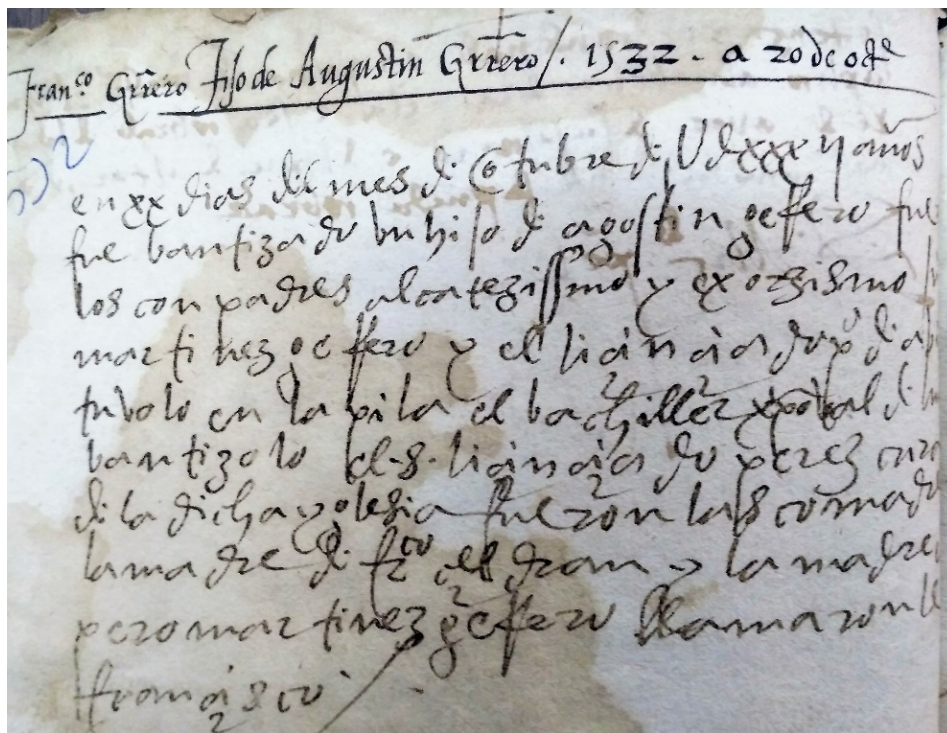 Franco Grrero Fijo de Augustin Grrero /. 1532 - a 20 de octe
en xx dias del mes de Otubre de U d xxx ii años
fue bautizado un hijo de agostin gerrero fue
los conpadres
martinez gerrero y el licenciado
tuvolo en la pila el bachiller xpoval de
bautizolo el s. licenciado perez cura
de la dicha yglesia fueron las comad
la madre de frco y la madre
pero martinez gerrero llamaronle
francisco